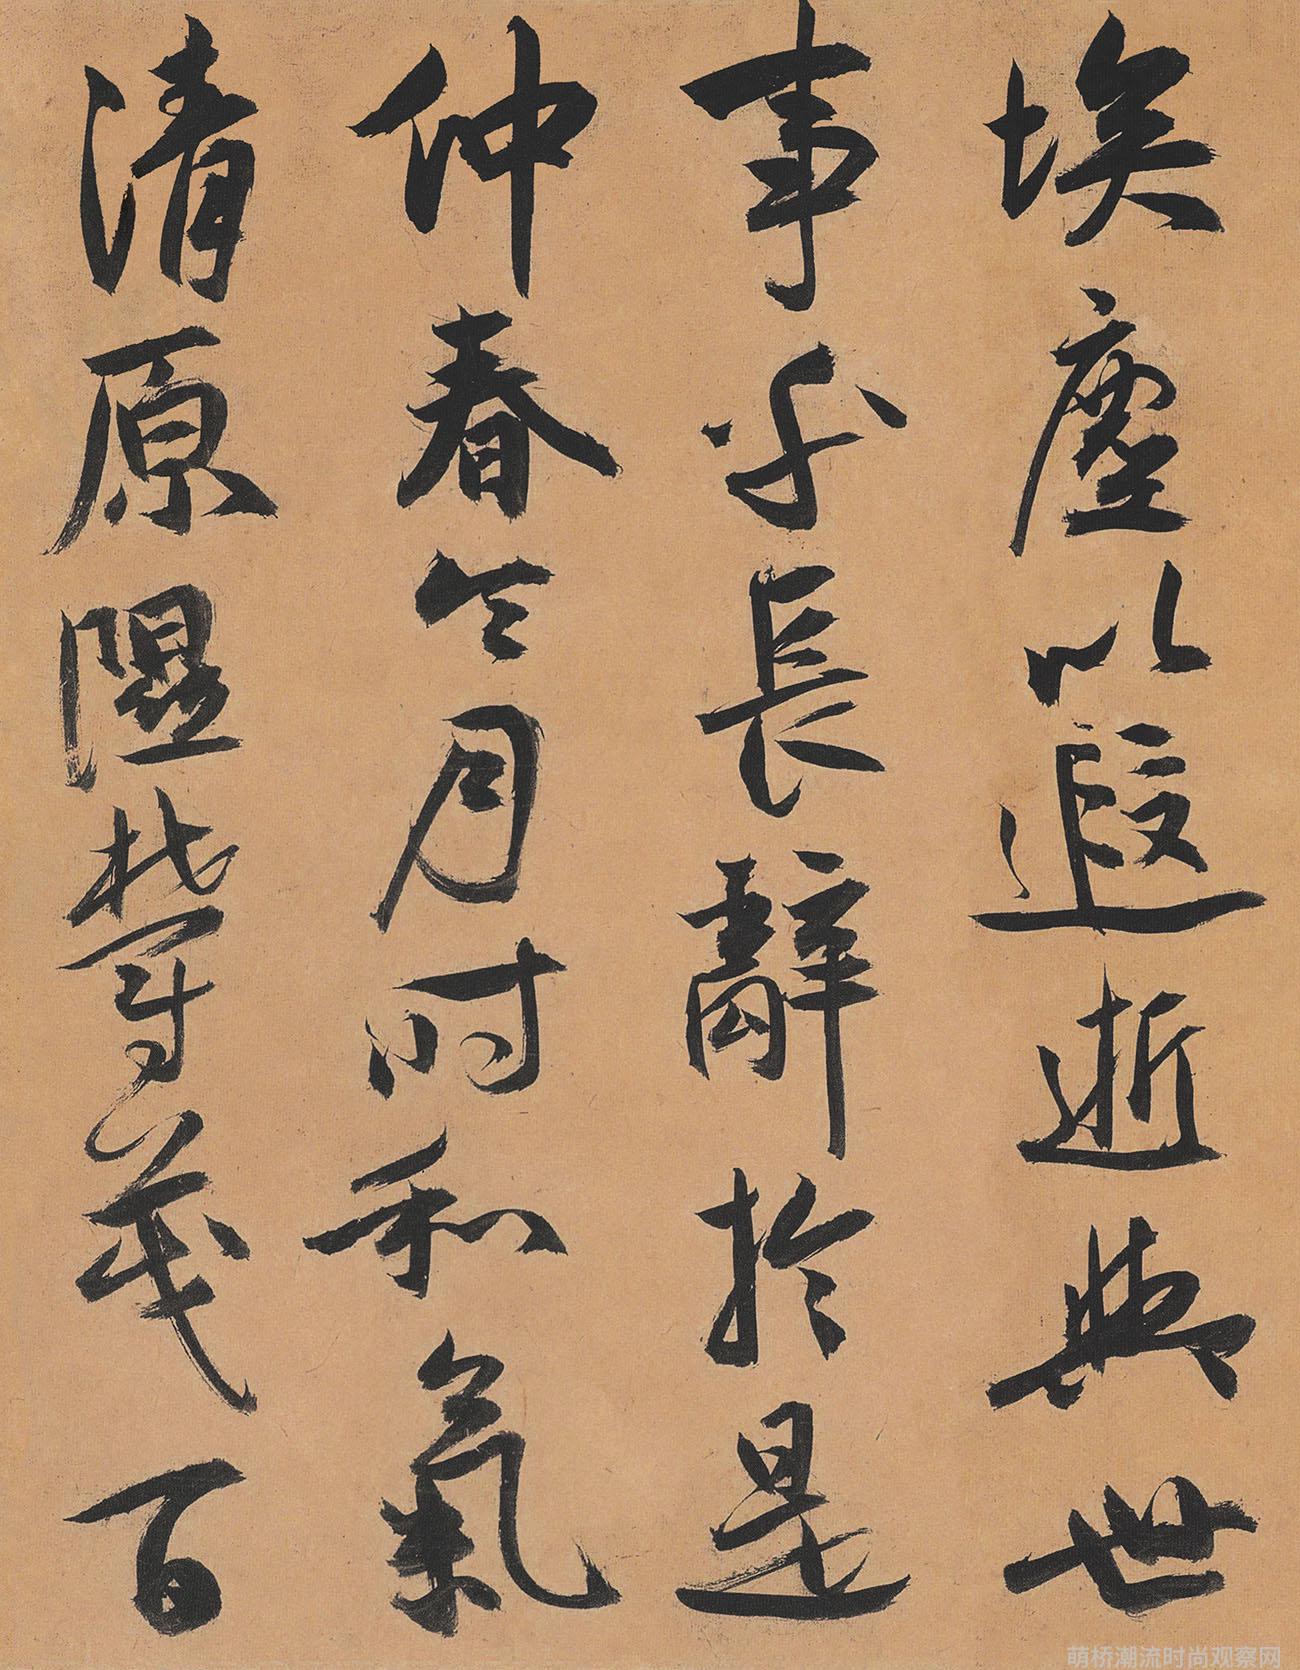 埃塵以遐逝與世
事乎長辭於是
仲春令月時和氣
清原隰鬱茂百
萌桥潮流时尚观察网